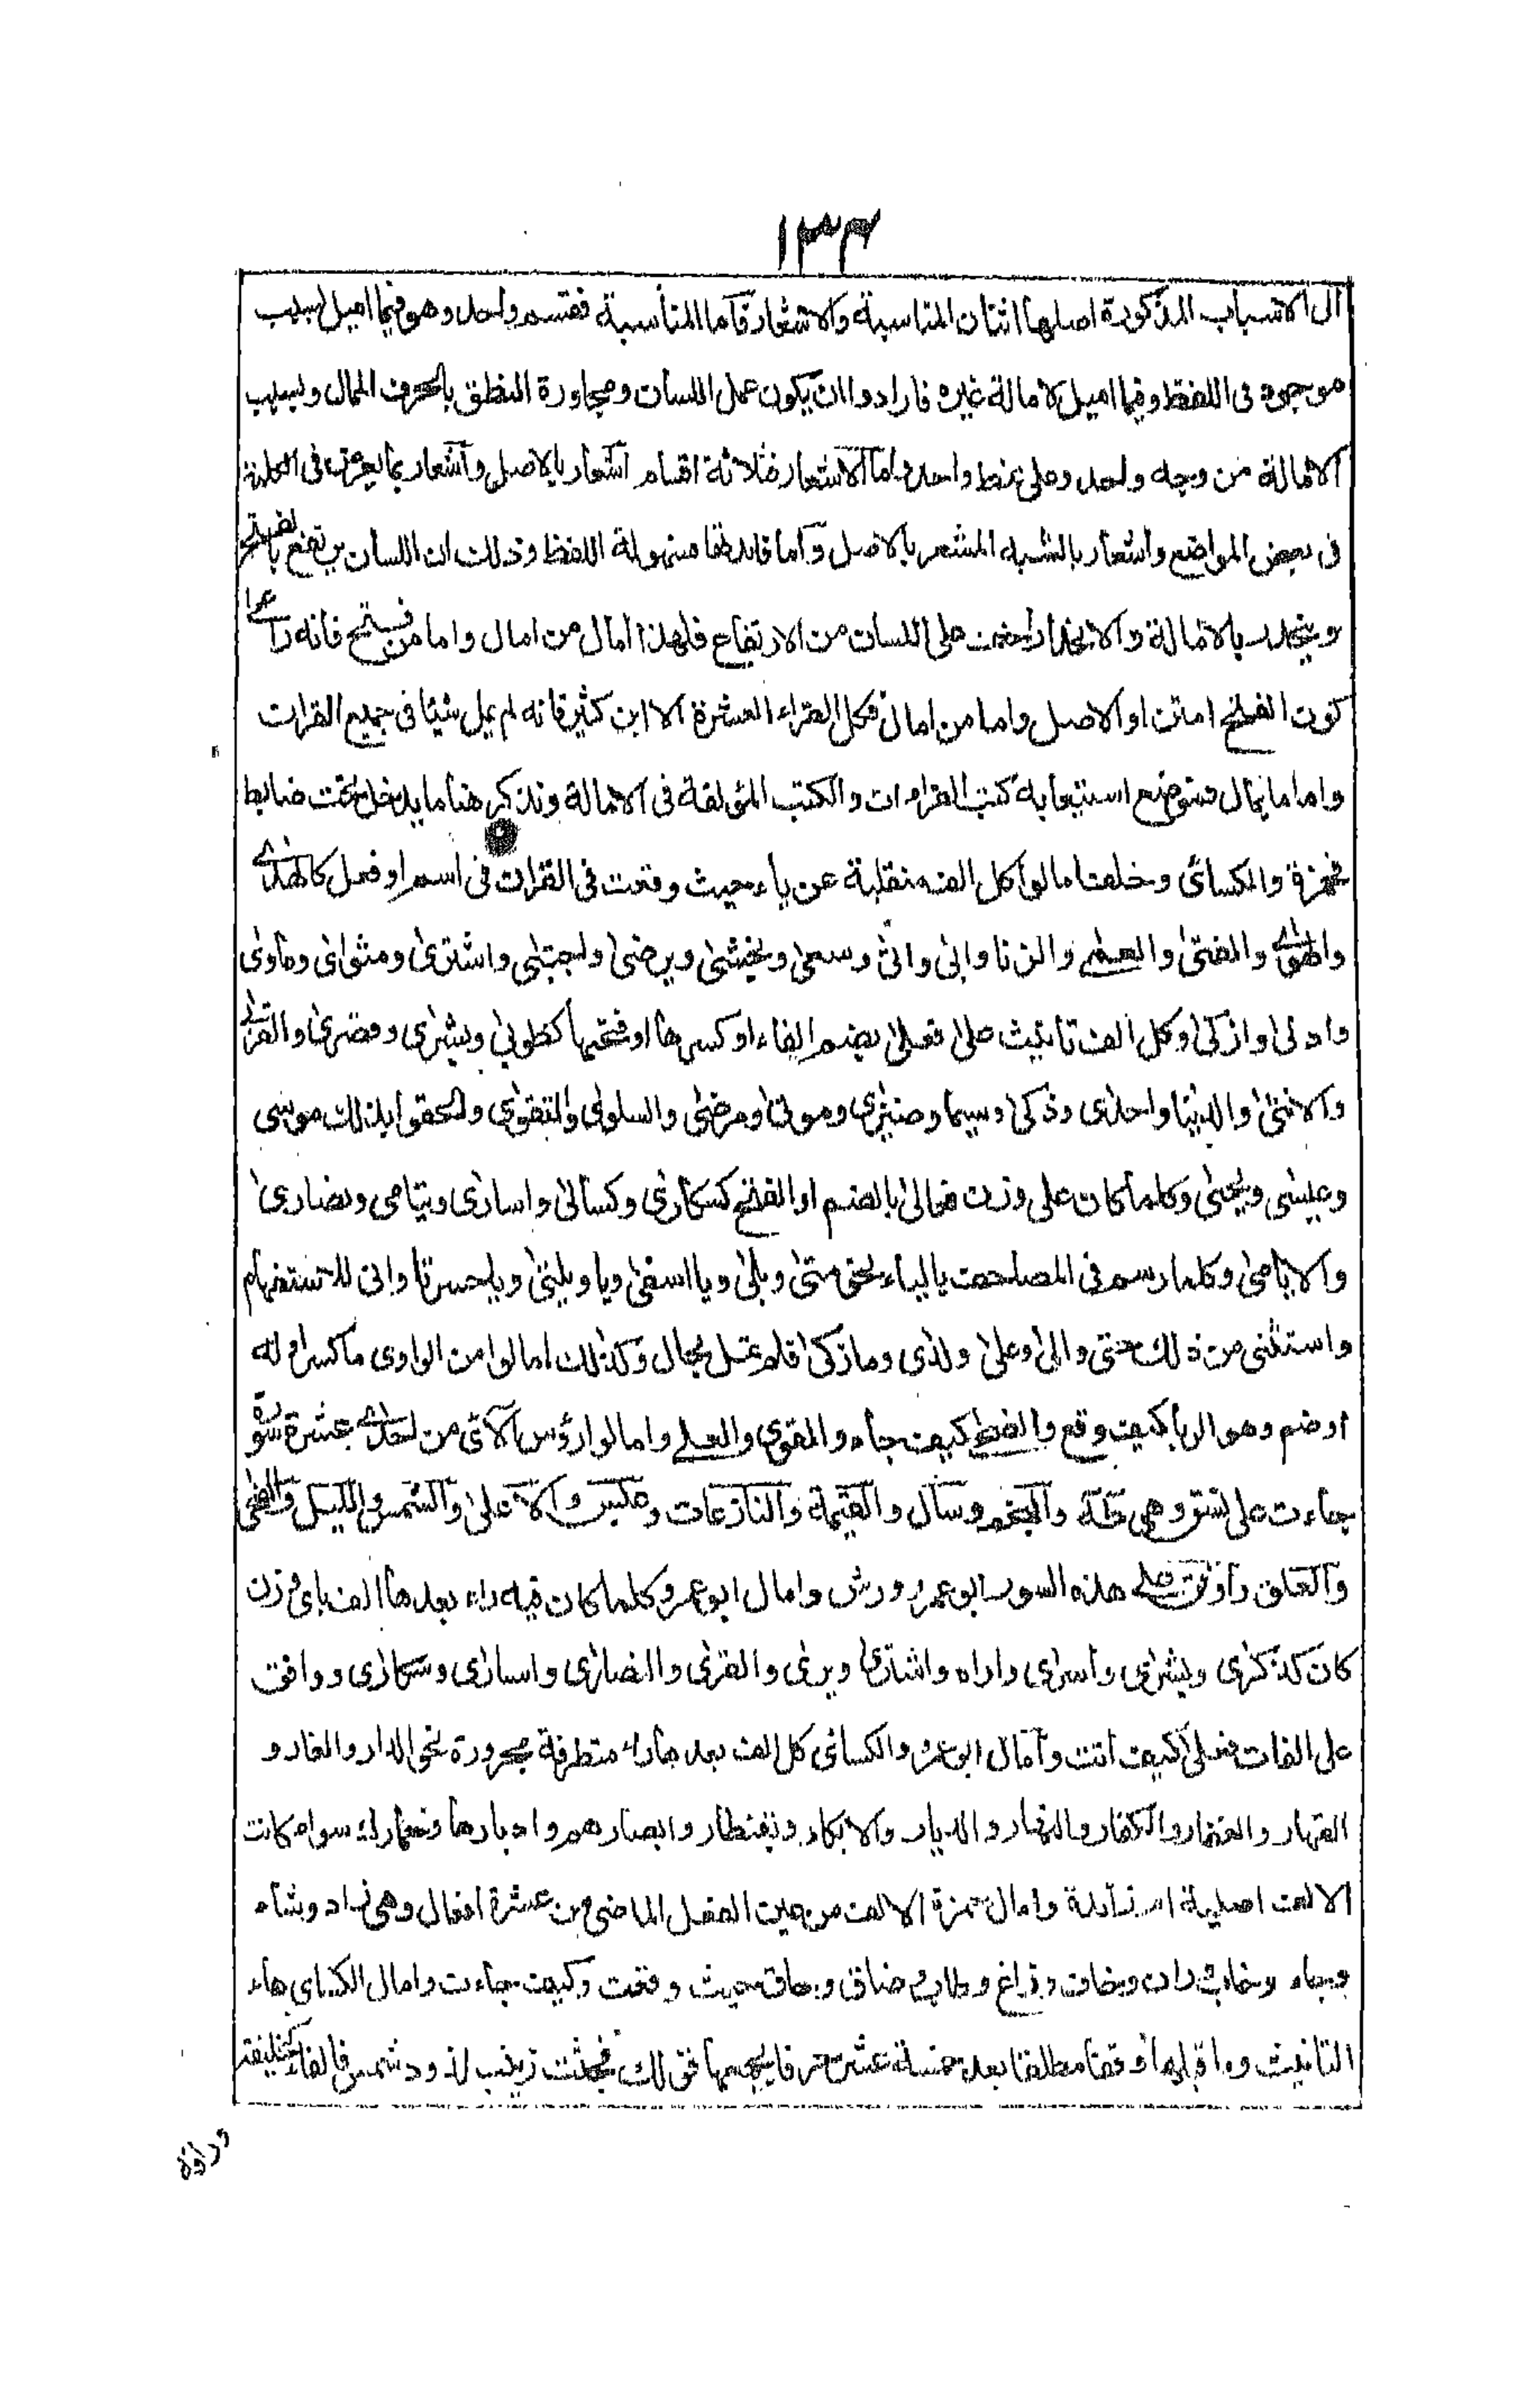 ١٣٤
الى الاسباب المذكورة اصلها اثنان المناسبة والاشعار فاما المناسبة فقسم واحد وهو فيما اميل لسبب
موجود فى اللفظ وفيما اميل لامالة غيره فارادوا ان يكون عمل اللسان ومجاورة النطق بالحرف الممال وبسبب
الامالة من وجه واحد وعلى نمط واحد واما الاشعار فثلاثة اقسام اشعار بالاصل واشعار بما يعرض فى الكلمة
فى بعض المواضع واشعار بالشبه المشعر بالاصل واما فائدتها فسهولة اللفظ وذلك ان اللسان يرتفع بالفتح
وينحدر بالامالة والانحدار اخف على اللسان من الارتفاع فلهذا امال من امال واما من فتح فانه راعى
كون الفتح امتن او الاصل واما من امال فكل القراء العشرة الا ابن كثير فانه لم يمل شيئا فى جميع القران
واما ما يمال فموضع استيعابه كتب القراءات والكتب المؤلفة فى الامالة ونذكر هنا ما يدخل تحت ضابط
فحمزة والكسائى وخلف امالوا كل الف منقلبة عن ياء حيث وقعت فى القران فى اسم او فعل كالهدى
والهوى والفتى والعمى والزنا وابى واتى وسعى ويخشى ويرضى واجتبى واشترى ومثوى ومأوى
وادنى وازكى وكل الف تأنيث على فعلى بضم الفاء او كسرها او فتحها كطوبى وبشرى وقصرى والقربى
والانثى والدنيا واحدى وذكرى وسيما وضيزى وموتى ومرضى والسلوى والتقوى والحقوا بذلك موسى
وعيسى ويحيى وكلما كان على وزن فعالى بالضم او الفتح كسكارى وكسالى واسارى ويتامى ونصارى
والايامى وكلما رسم فى المصاحف بالياء نحو متى وبلى ويا اسفى ويا ويلتى ويا حسرتا وانى للاستفهام
واستثنى من ذلك حتى والى وعلى ولدى وما زكى فلم تمل بحال وكذلك امالوا من الواوى ما كسر اوله
او ضم وهو الربا كيف وقع والضحى كيف جاء والقوى والعلى وامالوا رؤس الآى من احدى عشرة سورة
جاءت على نسق وهى طه والنجم وسأل والقيمة والنازعات وعبس والاعلى والشمس والليل والضحى
والعلق ووافق على هذه السور ابو عمرو وورش وامال ابو عمرو كلما كان فيه راء بعدها الف باى وزن
كان كذكرى وبشرى واسرى واراه واشترى ويرى والقرى والنصارى واسارى وسكارى ووافق
على الفات فعلى كيف اتت وامال ابو عمرو والكسائى كل الف بعدها راء متطرفة مجرورة نحو الدار والغار و
القهار والغفار والكفار والنهار والديار والابكار وبقنطار وابصارهم وادبارها وحمارك سواء كانت
الالف اصلية ام زائدة وامال حمزة الالف من عين الفعل الماضى من عشرة افعال وهى زاد وشاء
وجاء وخاب وران وخاف وزاغ وطاب وضاق وحاق حيث وقعت وكيف جاءت وامال الكسائى هاء
التانيث وما قبلها وقفا مطلقا بعد خمسة عشر حرفا يجمعها قولك فجثت زينب لذود شمس فالفاء كخليفة
ورافة